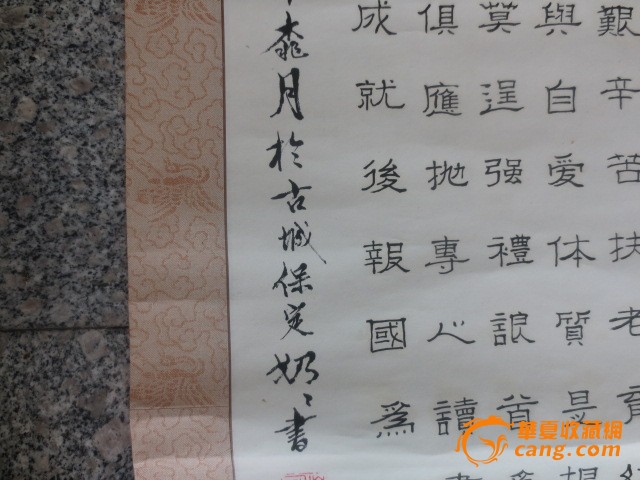 艱辛苦扶老育
與自爱体質是根
莫逞强禮誏首為
俱應抛專心讀書
成就後報國為
月於古城保定奶〻書
華夏收藏网
cang.com